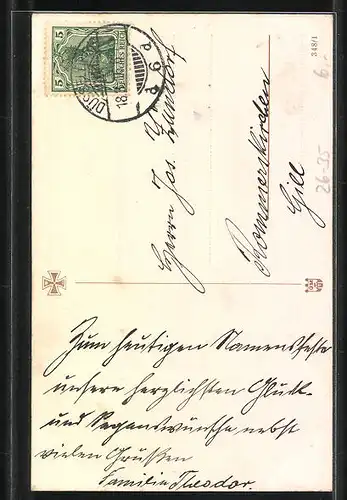 5
5
DEUTSCHES REICH
DÜSSEL
18.
6
a
348/1
6.-
26-35
Herrn Jos.
Rommerskirchen
Gill
Zum heutigen Namensfeste
unsere herzlichsten Glück-
und Segenswünsche, nebst
vielen Grüßen
Familie Theodor.